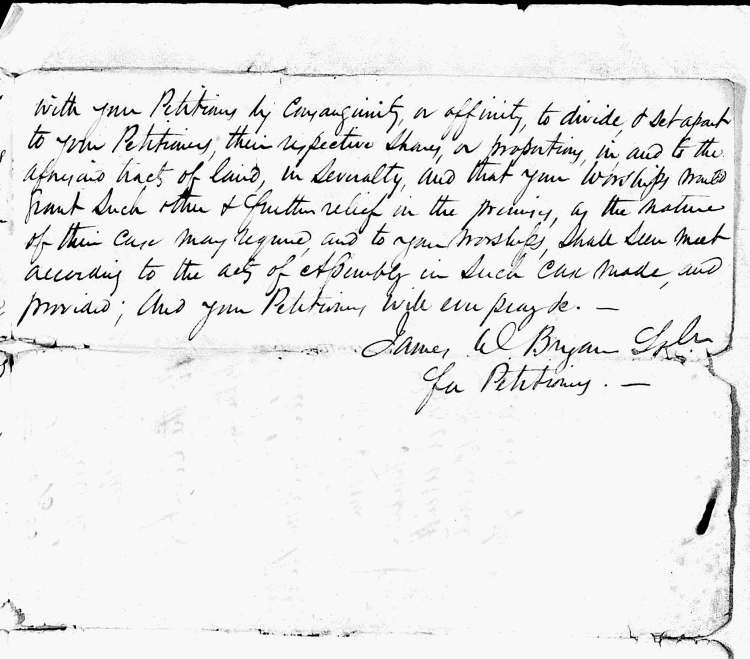 with your Petitioners by Consanguinity, or affinity, to divide, & set apart
to your Petitioners, their respective shares, or proportions, in and to the
aforesaid tracts of land, in Severalty, and that your Worships would
Grant Such other & further relief in the premises, as the nature
of their case may require, and to your Worships, Shall Seem meet
according to the acts of Assembly in Such Case made, and
provided; And your Petitioners will ever pray &c. —
James W. Bryan
for Petitioners. —